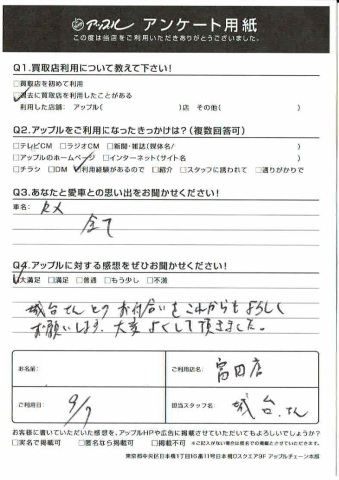 アップル アンケート用紙
この度は当店をご利用いただきありがとうございました。
Q1.買取店利用について教えて下さい!
□買取店を初めて利用
☑過去に買取店を利用したことがある
利用した店舗: アップル( )店 その他( )
Q2.アップルをご利用になったきっかけは?(複数回答可)
□テレビCM □ラジオCM □新聞・雑誌(媒体名/ )
□アップルのホームページ □インターネット(サイト名 )
□チラシ □DM ☑利用経験があるので □紹介 □スタッフに誘われて □通りがかりで
Q3.あなたと愛車との思い出をお聞かせください!
車名: RX
全て
Q4.アップルに対する感想をぜひお聞かせください!
☑大満足 □満足 □普通 □もう少し □不満
城台さんとの お付合いをこれからもよろしく
お願いします、大変よくして頂きました。
お名前:
ご利用店名: 富田店
ご利用日: 9/7
担当スタッフ名: 城台さん
お客様に書いていただいた感想を、アップルHPや広告に掲載させていただいてもよろしいでしょうか?
□実名で掲載可 □匿名なら掲載可 □掲載不可 ※ご記入がない場合は匿名での掲載とさせていただきます。
東京都中央区日本橋1丁目16番11号日本橋Dスクエア9F アップルチェーン本部